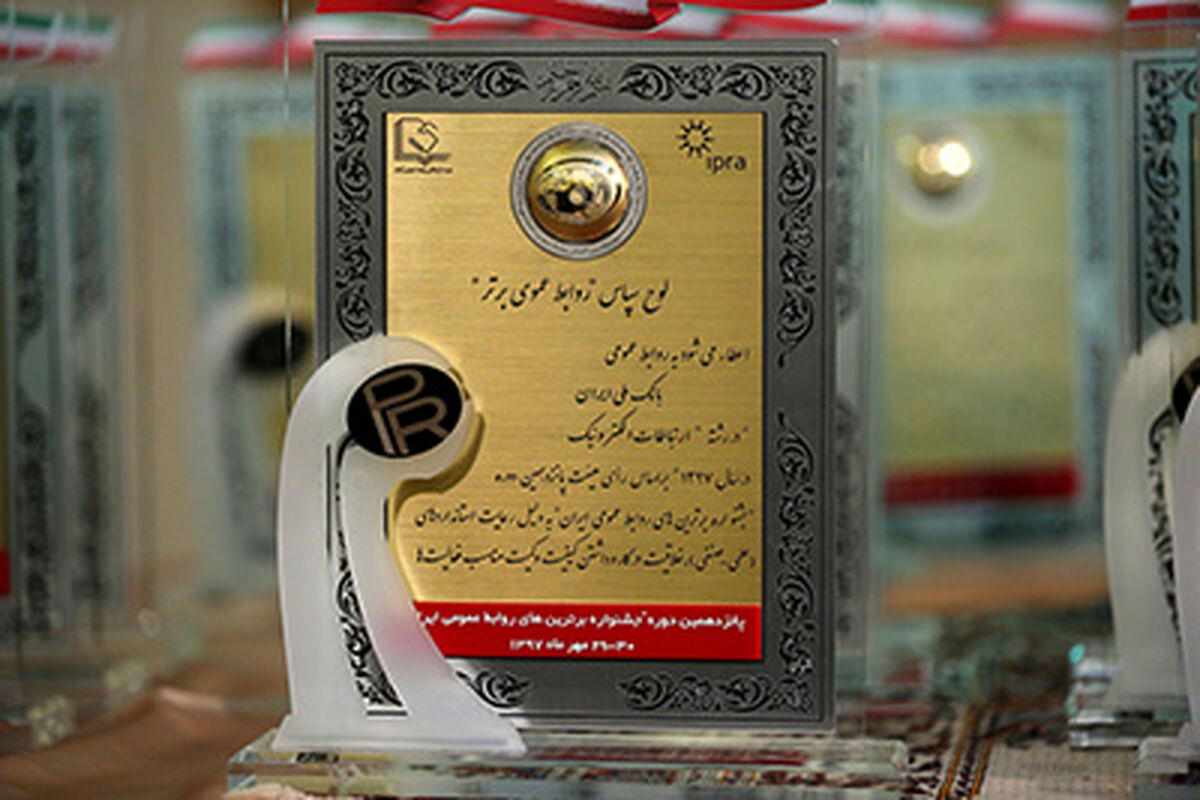 ipra
لوح سپاس "روابط عمومی برتر"
اعطا می شود به روابط عمومی
بانک ملی ایران
در رشته " ارتباطات الکترونیک "
در سال ۱۳۹۷ براساس رأی هیئت پانزدهمین دوره
"جشنواره برترین های روابط عمومی ایران" به دلیل رعایت استانداردهای
علمی، صنفی، خلاقیت در کار و داشتن کیفیت و کمیت مناسب فعالیت ها
پانزدهمین دوره "جشنواره برترین های روابط عمومی ایر
۲۹-۳۰ مهر ماه ۱۳۹۷
PR